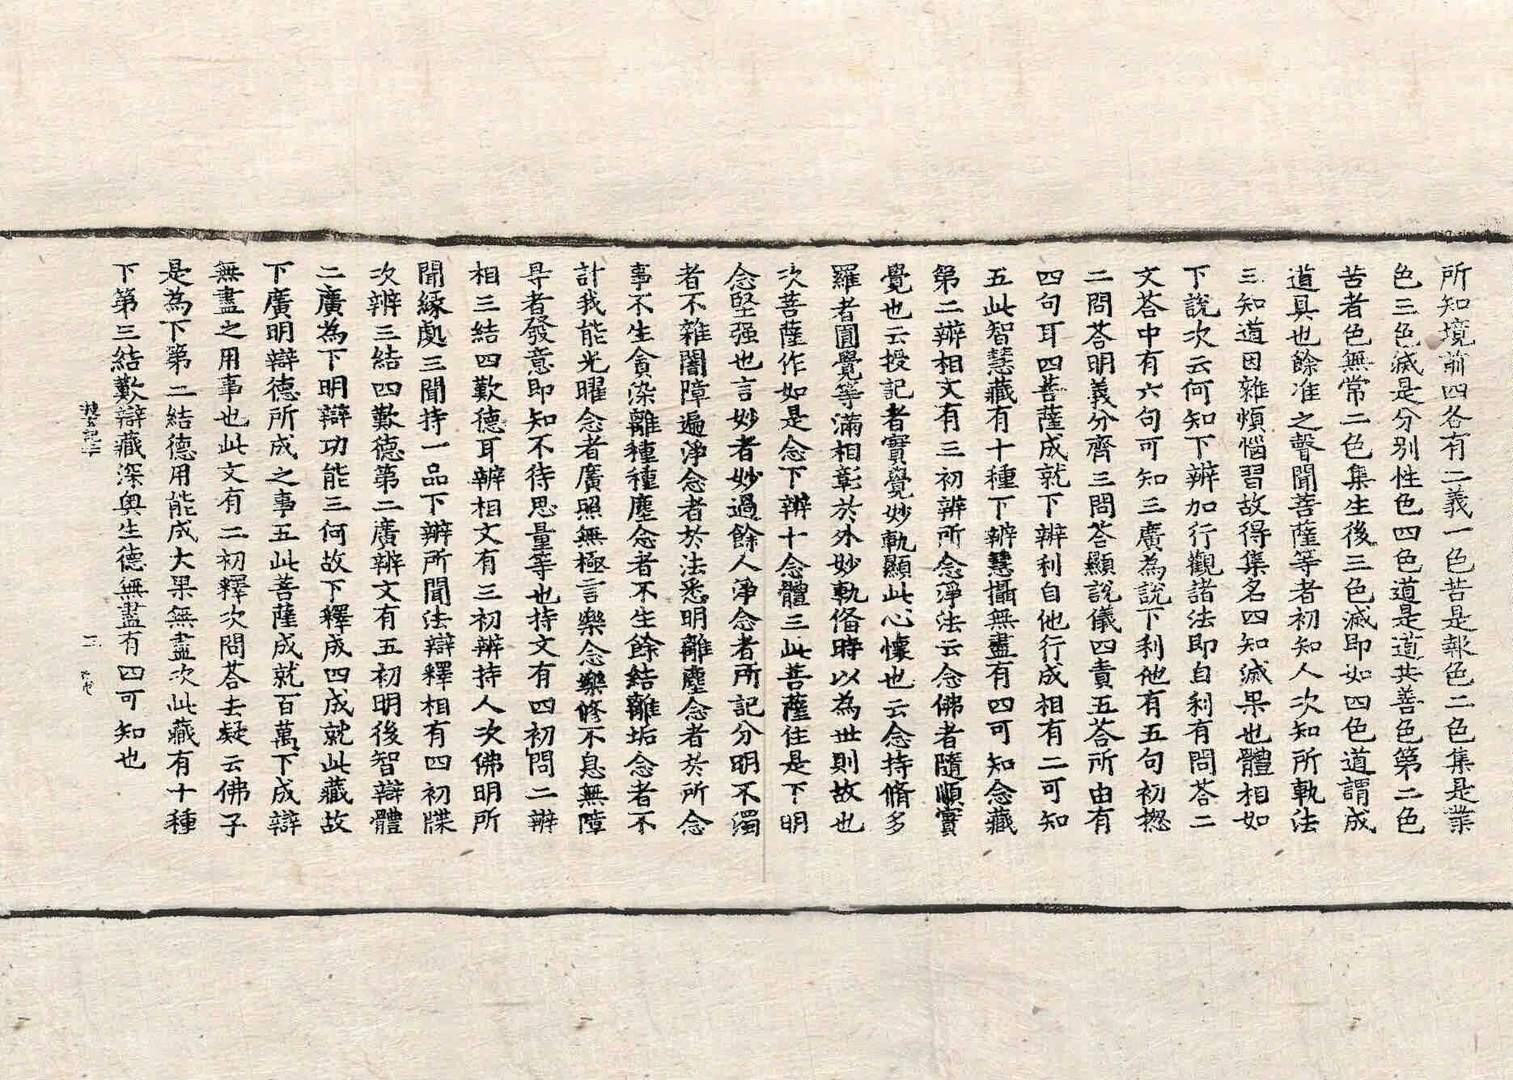 所知境前四各有二義一色苦是報色二色集是業
色三色滅是分別性色四色道是道共善色第二色
苦者色無常二色集生後三色滅即如四色道謂成
道具也餘准之聲聞菩薩等者初知人次知所軌法
三知道因雜煩惱習故得集名四知滅果也體相如
下說次云何知下辨加行觀諸法即自利有問荅二
文荅中有六句可知三廣為說下利他有五句初揔
二問荅明義分齊三問荅顯說儀四責五荅所由有
四句耳四菩薩成就下辨利自他行成相有二可知
五此智慧藏有十種下辨慧攝無盡有四可知念藏
第二辨相文有三初辨所念淨法云念佛者隨順實
覺也云授記者實覺妙軌顯此心懷也云念持脩多
羅者圓覺等滿相彰於外妙軌俻時以為世則故也
次菩薩作如是念下辨十念體三此菩薩住是下明
念堅强也言妙者妙過餘人淨念者所記分明不濁
者不雜闇障遍淨念者於法悉明離塵念者於所念
事不生貪染離種種塵念者不生餘結離垢念者不
計我能光曜念者廣照無極言樂念樂修不息無障
㝵者發意即知不待思量等也持文有四初問二辨
相三結四歎德耳辨相文有三初辨持人次佛明所
聞緣處三聞持一品下辨所聞法辯釋相有四初牒
次辨三結四歎德第二廣辨文有五初明後智辯體
二廣為下明辯功能三何故下釋成四成就此藏故
下廣明辯德所成之事五此菩薩成就百萬下成辯
無盡之用事也此文有二初釋次問荅去疑云佛子
是為下第二結德用能成大果無盡次此藏有十種
下第三結歎辯藏深奥生德無盡有四可知也